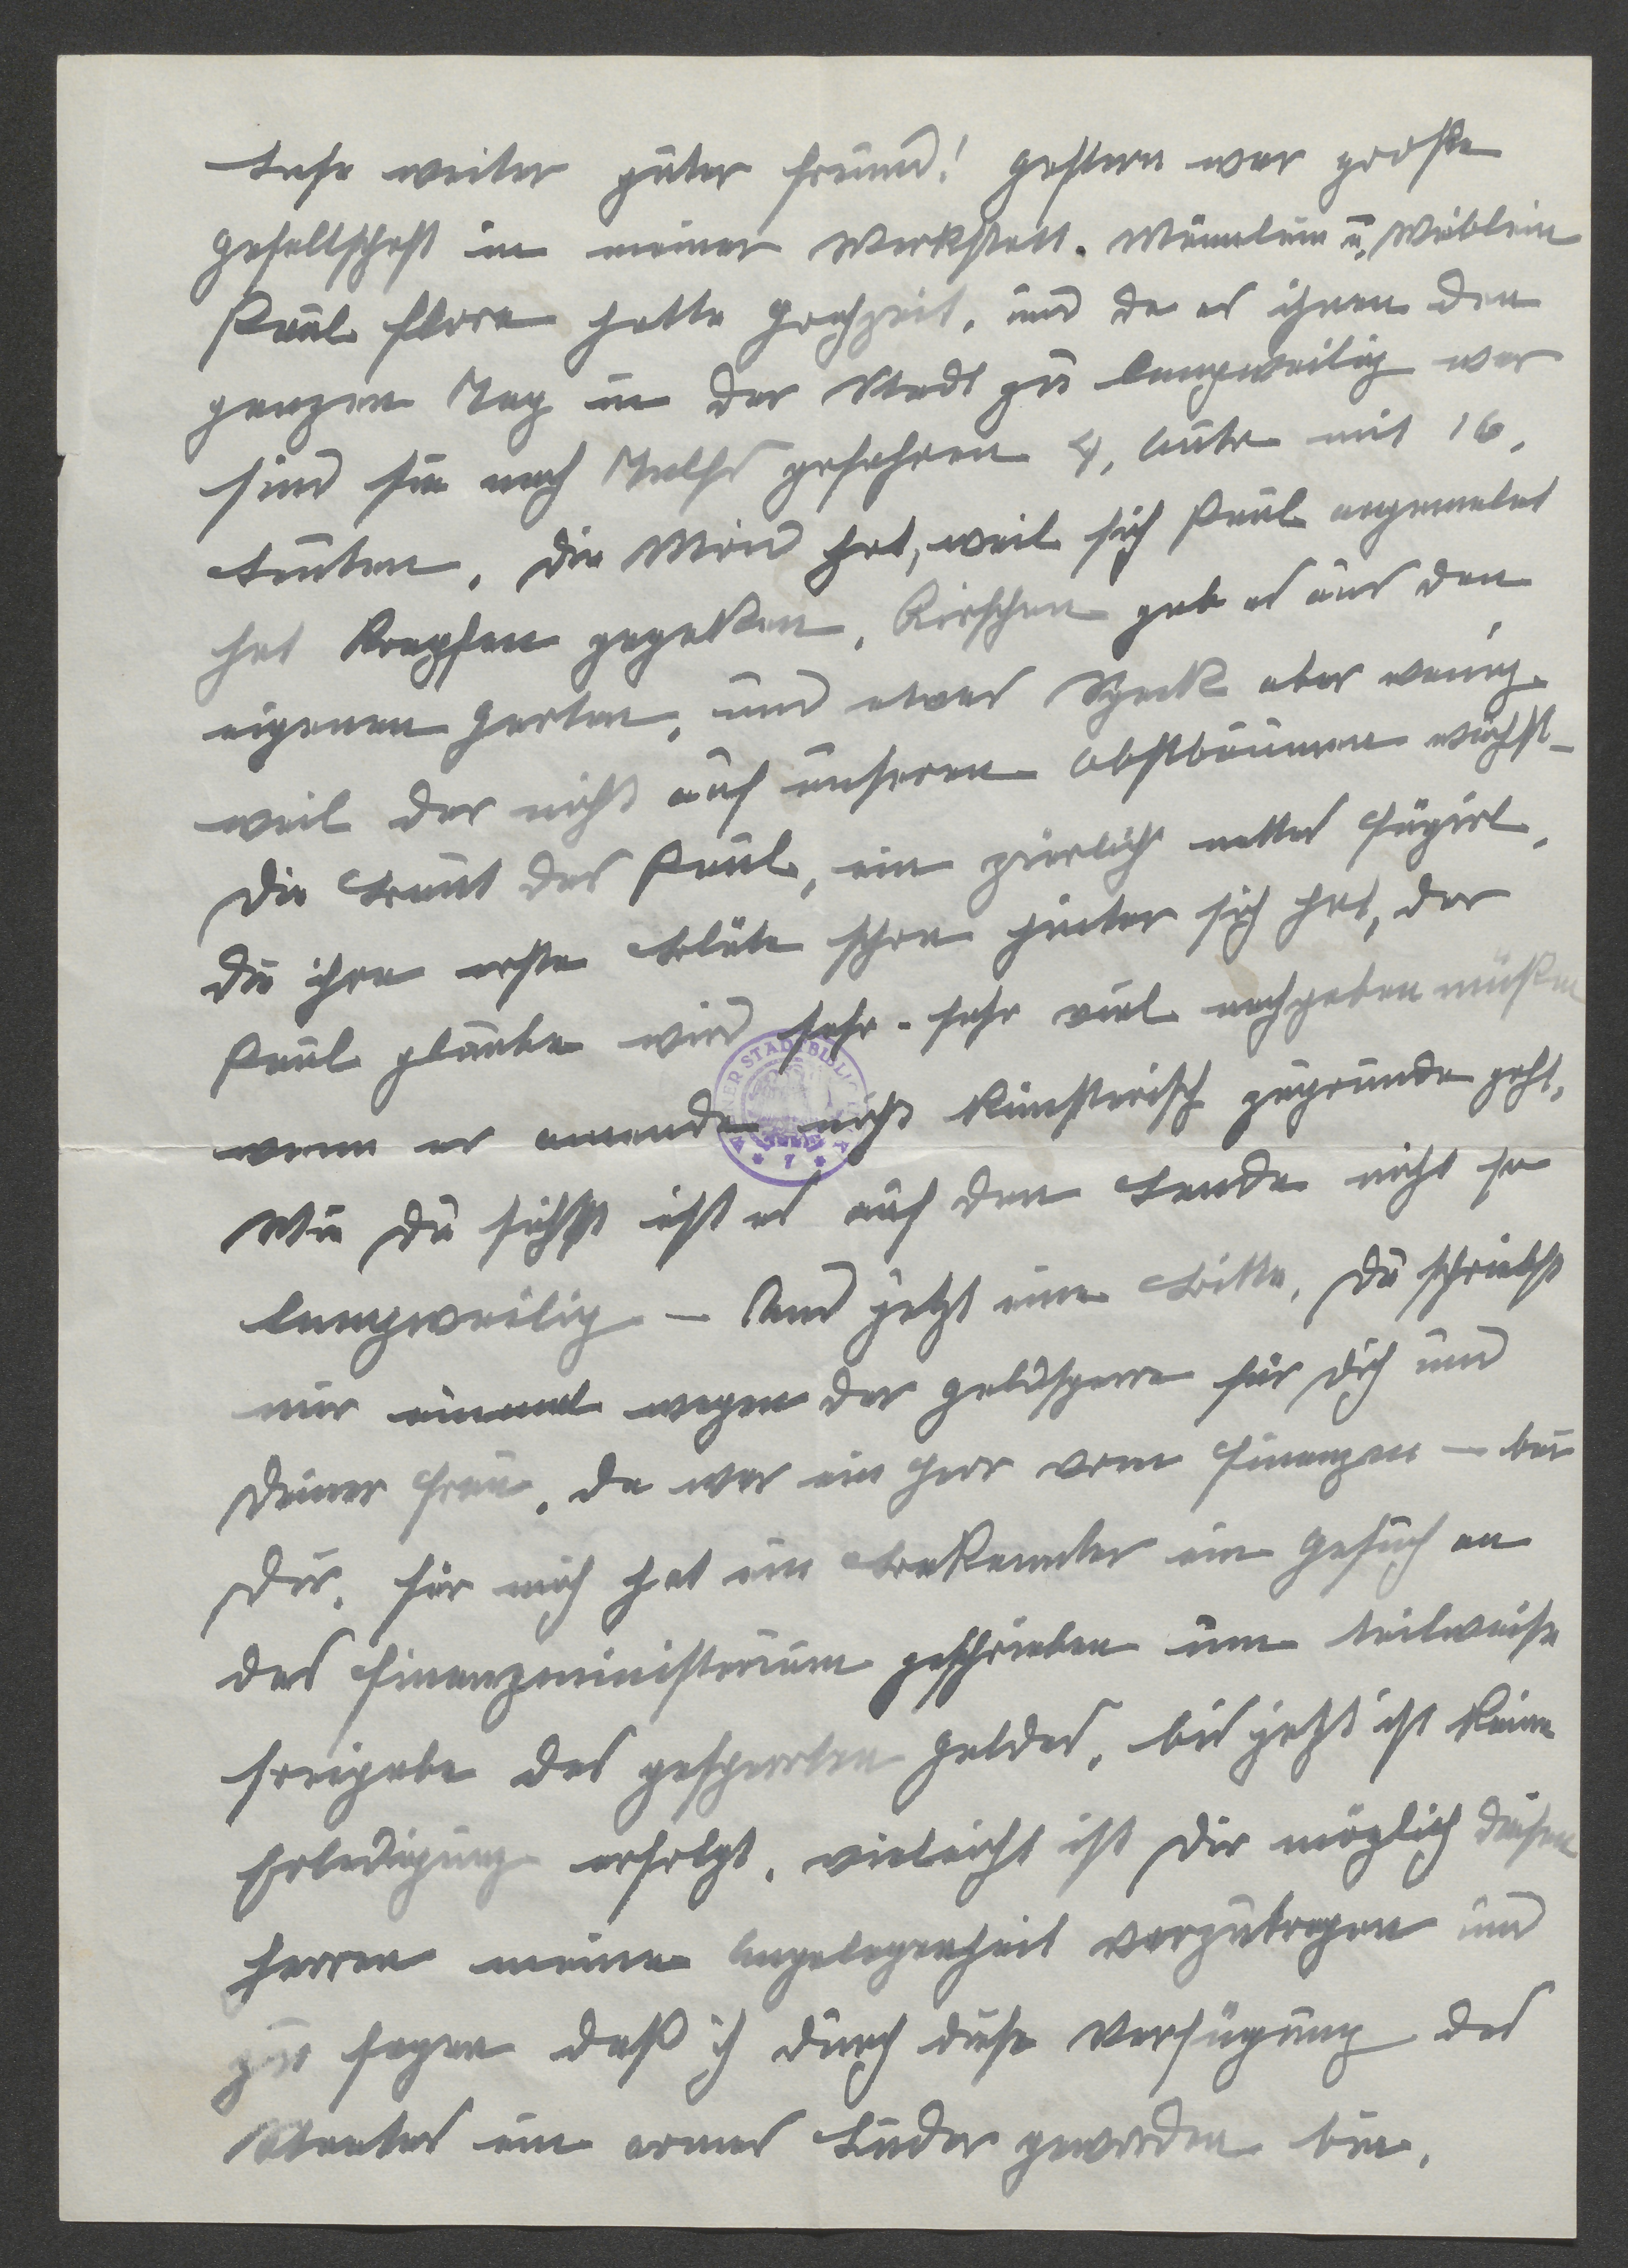 Lese weiter guter Freund! Gestern war große
Gesellschaft in meiner Werkstatt. Männlein u. Weiblein
Paul Flora hatte Hochzeit, und da es ihnen den
ganzen Tag in der Stadt zu langweilig war
sind sie nach Telfs gefahren 4, Auto mit 16,
Leuten, die Moid hat, weil sich Paul angemeldet
hat Krapfen gegeben, Kirschen gab es aus den
eigenen Garten, und etwas Speck aber wenig
weil der nicht auf unseren Obstbäumen wächst –
Die Braut des Paul, ein zierlich nettes Figürl,
die ihre erste Blüte schon hinter sich hat, der
Paul glaube wird sehr - sehr viel nachgeben müßen
wenn er amende nicht künstlerisch zugrunde geht,
Wie Du siehst ist es auf dem Lande nicht so
langweilig – Und jetzt eine Bitte, Du schriebst
mir einmal wegen der Geldsperre für Dich und
Deiner Frau, da war ein Herr vom Finanzen – bei
Dir, für mich hat ein Bekannter ein Gesuch an
das Finanzministerium geschrieben um teilweise
freigabe des gesperrten Geldes, bis jetzt ist keine
Erledigung erfolgt, vieleicht ist Dir möglich diesen
Herren meine Angelegenheit vorzutragen und
zu sagen daß ich durch diese Verfügung des
Staates ein armes Luder geworden bin,